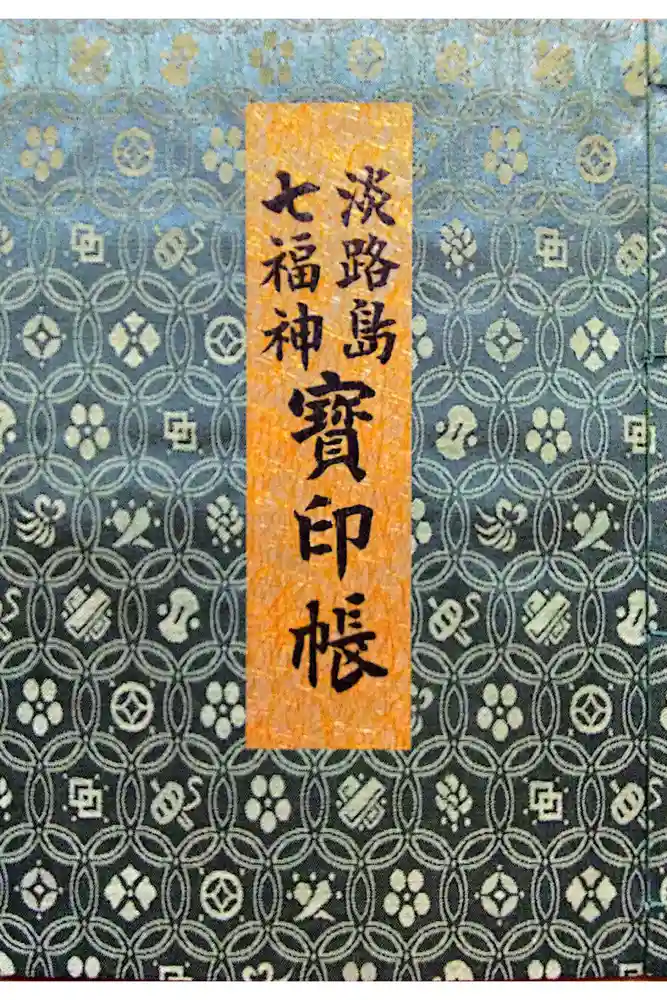 淡路島
七福神
寶印帳